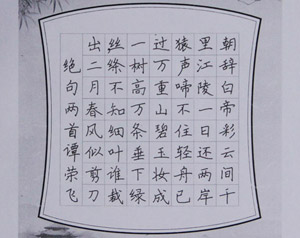 朝辞白帝彩云间千
里江陵一日还两岸
猿声啼不住轻舟已
过万重山碧玉妆成
一树高万条垂下绿
丝绦不知细叶谁裁
出二月春风似剪刀
绝句两首谭荣飞